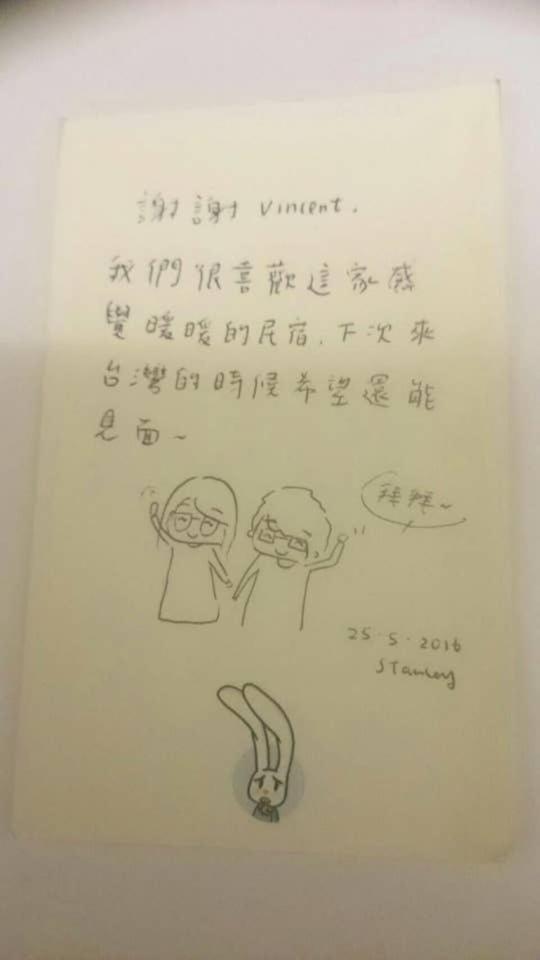 謝謝 Vincent.
我們很喜歡這家感
覺暖暖的民宿.下次來
台灣的時候希望還能
見面~
拜拜~
25.5.2016
Stanley